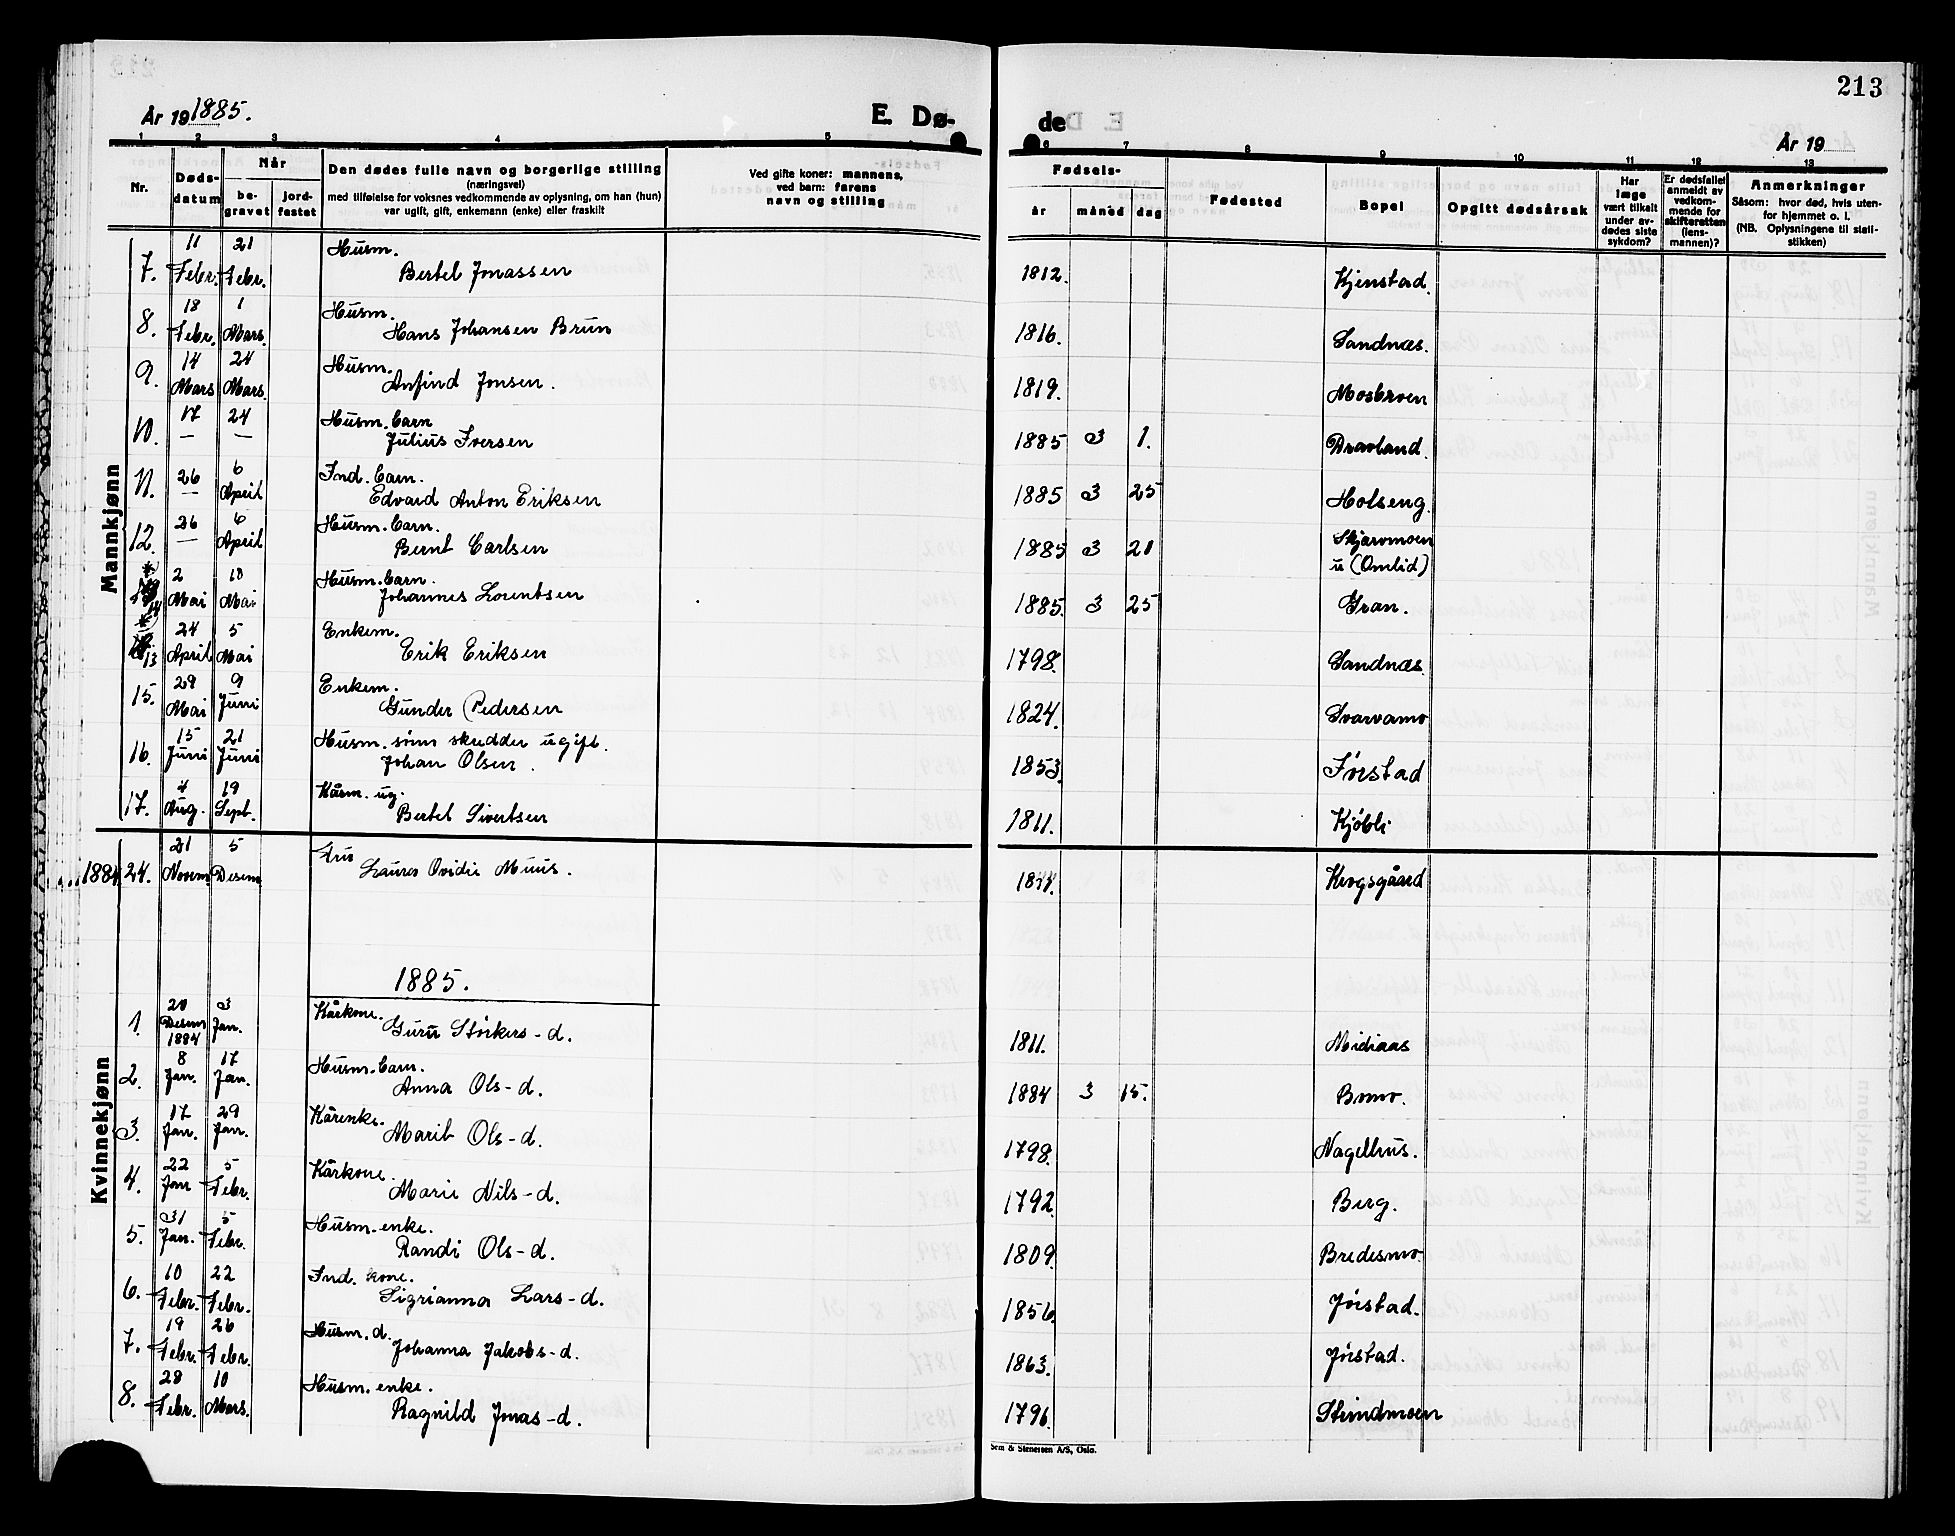 213
År 19 1885.
E. Dø-
de
År 19
1 2 3 4 5 6 7 8 9 10 11 12 13
Nr.
Døds-
datum
Når
be-
gravet
jord-
festet
Den dødes fulle navn og borgerlige stilling
(næringsvei)
med tilføielse for voksnes vedkommende av oplysning, om han (hun)
var ugift, gift, enkemann (enke) eller fraskilt
Ved gifte koner: mannens,
ved barn: farens
navn og stilling
Fødsels-
år
måned
dag
Fødested
Bopel
Opgitt dødsårsak
Har
læge
vært tilkalt
under av-
dødes siste
sykdom?
Er dødsfallet
anmeldt av
vedkom-
mende for
skifteretten
(lens-
mannen)?
Anmerkninger
Såsom: hvor død, hvis uten-
for hjemmet o. l.
(NB. Oplysningene til stati-
stikken)
Mannkjønn
7. 11 Febr. 21 Febr. Husm.
Bertel Jonassen 1812. Kjenstad.
8. 18 Febr. 1 Mars. Husm.
Hans Johansen Brun 1816. Sandnæs.
9. 14 Mars 24 Mars. Husm.
Anfind Jonsen. 1819. Mosbroen
10. 17 — 24 — Husm. barn
Julius Iversen 1885 3 1. Dravland.
11. 26 — 6 April Ind. barn.
Edvard Anton Eriksen 1885 3 25 Holseng.
12. 26 — 6 April Husm. barn.
Bernt Carlsen 1885 3 21 Skjærmoen
u (Omlid)
14 2 Mai 18 Mai Husm. barn.
Johannes Lorentsen 1885. 3 25 Gran.
13 24 April 5 Mai Enkem.
Erik Eriksen 1798. Sandnæs.
15. 29 Mai 9 Juni Enkem.
Gunder Pedersen 1824. Svarvamo
16. 15 Juni 21 Juni Husm. sønn skredder ugift.
Johan Olsen. 1853. Førstad
17. 4 Aug. 19 Sept. Kårm. ug.
Bertel Sivertsen 1811. Kjøbli
Kvinnekjønn
1884 24. 21 Novem. 5 Desem Fru
Laura Ovidie Muus. Krogsgård
1885.
1. 20 Desem 1884 3 Jan. Kårkone.
Guru Størkers-d. 1811. Midiaas
2. 8 Jan. 17 Jan. Husm. barn.
Anna Ols-d. 1884 3 15. Bomo.
3. 17 Jan. 29 Jan. Kårenke.
Marit Ols-d. 1798. Nagelhus.
4. 22 Jan 5 Febr. Kårkone.
Marie Nils-d. 1792. Berg.
5. 31 Jan. 5 Febr. Husm. enke.
Randi Ols-d. 1809. Bredesmo.
6. 10 Febr. 22 Febr. Ind. kone.
Sigrianna Lars-d. 1856. Jørstad.
7. 19 Febr. 26 Febr. Husm. d.
Johanna Jakobs-d. 1863. Jørstad.
8. 28 Febr. 10 Mars. Husm. enke.
Ragnild Jonas-d. 1796. Strindmoen
Sem & Stenersen A/S, Oslo.